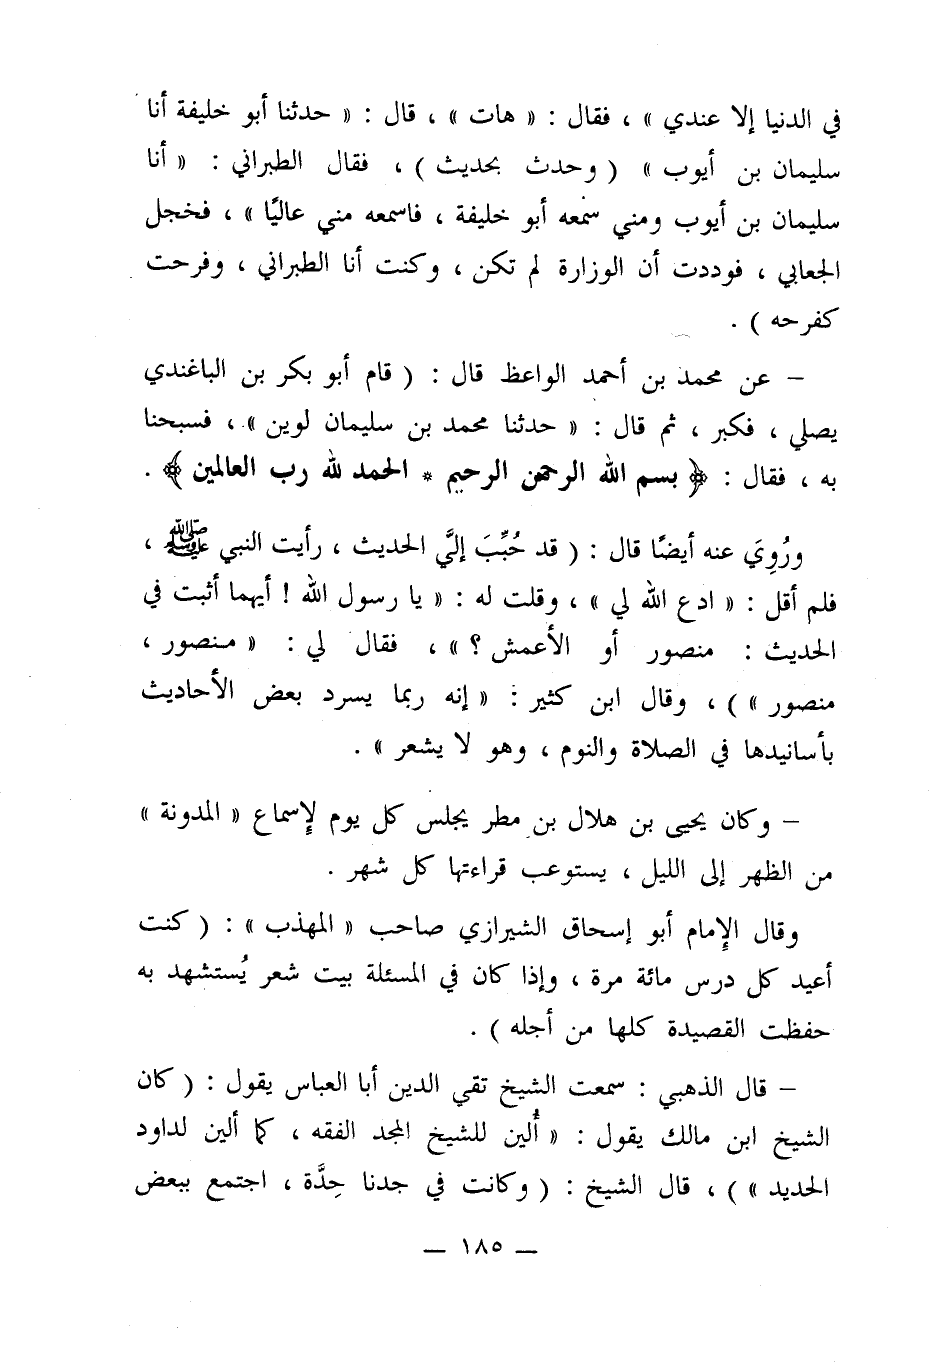 في الدنيا إلا عندي » ، فقال : « هات » ، قال : « حدثنا أبو خليفة أنا
سليمان بن أيوب » ( وحدث بحديث ) ، فقال الطبراني : « أنا
سليمان بن أيوب ومني سمعه أبو خليفة ، فاسمعه مني عاليًا » ، فخجل
الجعابي ، فوددت أن الوزارة لم تكن ، وكنت أنا الطبراني ، وفرحت
كفرحه ) .
– عن محمد بن أحمد الواعظ قال : ( قام أبو بكر بن الباغندي
يصلي ، فكبر ، ثم قال : « حدثنا محمد بن سليمان لوين » ، فسبحنا
به ، فقال : ﴿ بسم الله الرحمن الرحيم * الحمد لله رب العالمين ﴾ .
ورُوِيَ عنه أيضًا قال : ( قد حُبِّبَ إليَّ الحديث ، رأيت النبي ﷺ ،
فلم أقل : « ادع الله لي » ، وقلت له : « يا رسول الله ! أيهما أثبت في
الحديث : منصور أو الأعمش ؟ » ، فقال لي : « منصور ،
منصور » ) ، وقال ابن كثير : « إنه ربما يسرد بعض الأحاديث
بأسانيدها في الصلاة والنوم ، وهو لا يشعر » .
– وكان يحيى بن هلال بن مطر يجلس كل يوم لإسماع « المدونة »
من الظهر إلى الليل ، يستوعب قراءتها كل شهر .
وقال الإمام أبو إسحاق الشيرازي صاحب « المهذب » : ( كنت
أعيد كل درس مائة مرة ، وإذا كان في المسئلة بيت شعر يُستشهد به
حفظت القصيدة كلها من أجله ) .
– قال الذهبي : سمعت الشيخ تقي الدين أبا العباس يقول : ( كان
الشيخ ابن مالك يقول : « أُلين للشيخ المجد الفقه ، كما ألين لداود
الحديد » ) ، قال الشيخ : ( وكانت في جدنا حِدَّة ، اجتمع ببعض
– ١٨٥ –